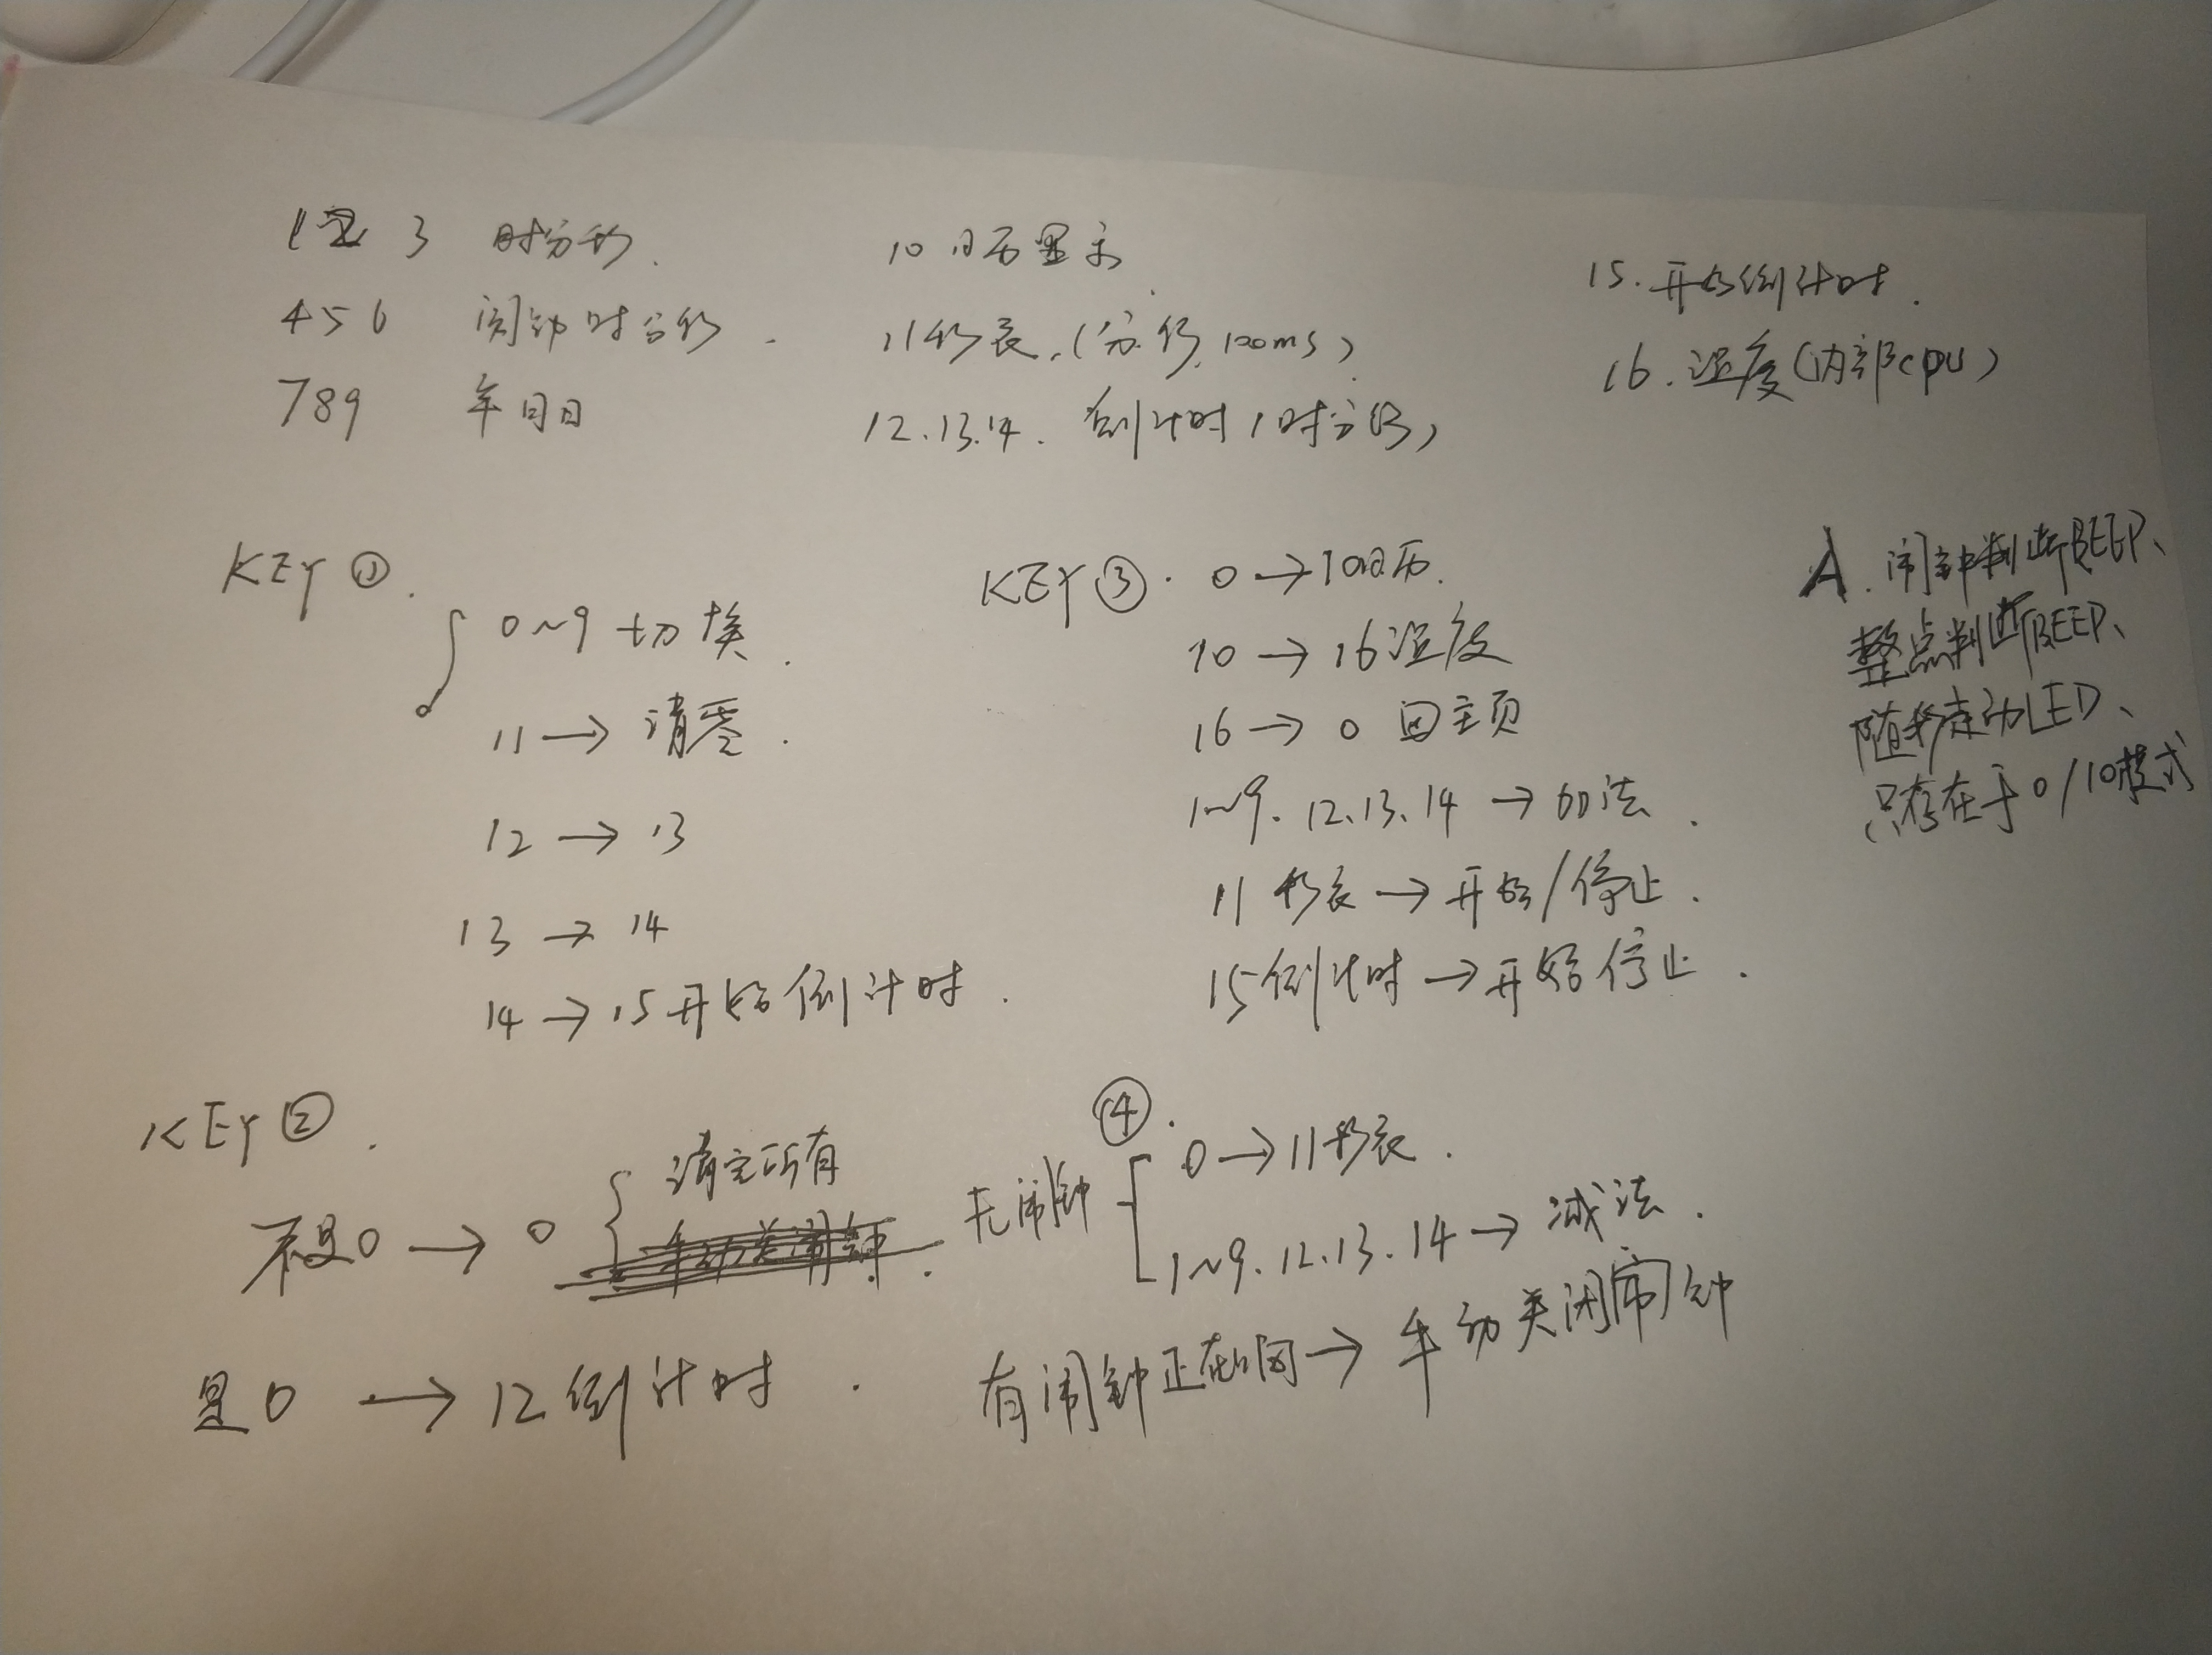 1 2 3 时分秒.
4 5 6 闹钟时分秒.
789 年月日
10 日历显示.
11 秒表.(分.秒.100ms)
12.13.14. 倒计时(时分秒)
15.开始倒计时.
16.温度(内部cpu)
KEY①.
0~9 切换.
11 → 清零.
12 → 13
13 → 14
14 → 15开始倒计时.
KEY③. 0 → 10日历.
10 → 16温度
16 → 0 回主页
1~9. 12.13.14 → 加法.
11 秒表 → 开始/停止.
15倒计时 → 开始停止.
A. 闹钟判断BEEP、
整点判断BEEP、
随秒走动LED、
只存在于0/10模式
KEY②.
不是0 → 0 { 清空所有
是0 → 12倒计时.
④.
无闹钟
0 → 11秒表.
1~9.12.13.14 → 减法.
有闹钟正在响 → 手动关闭闹钟